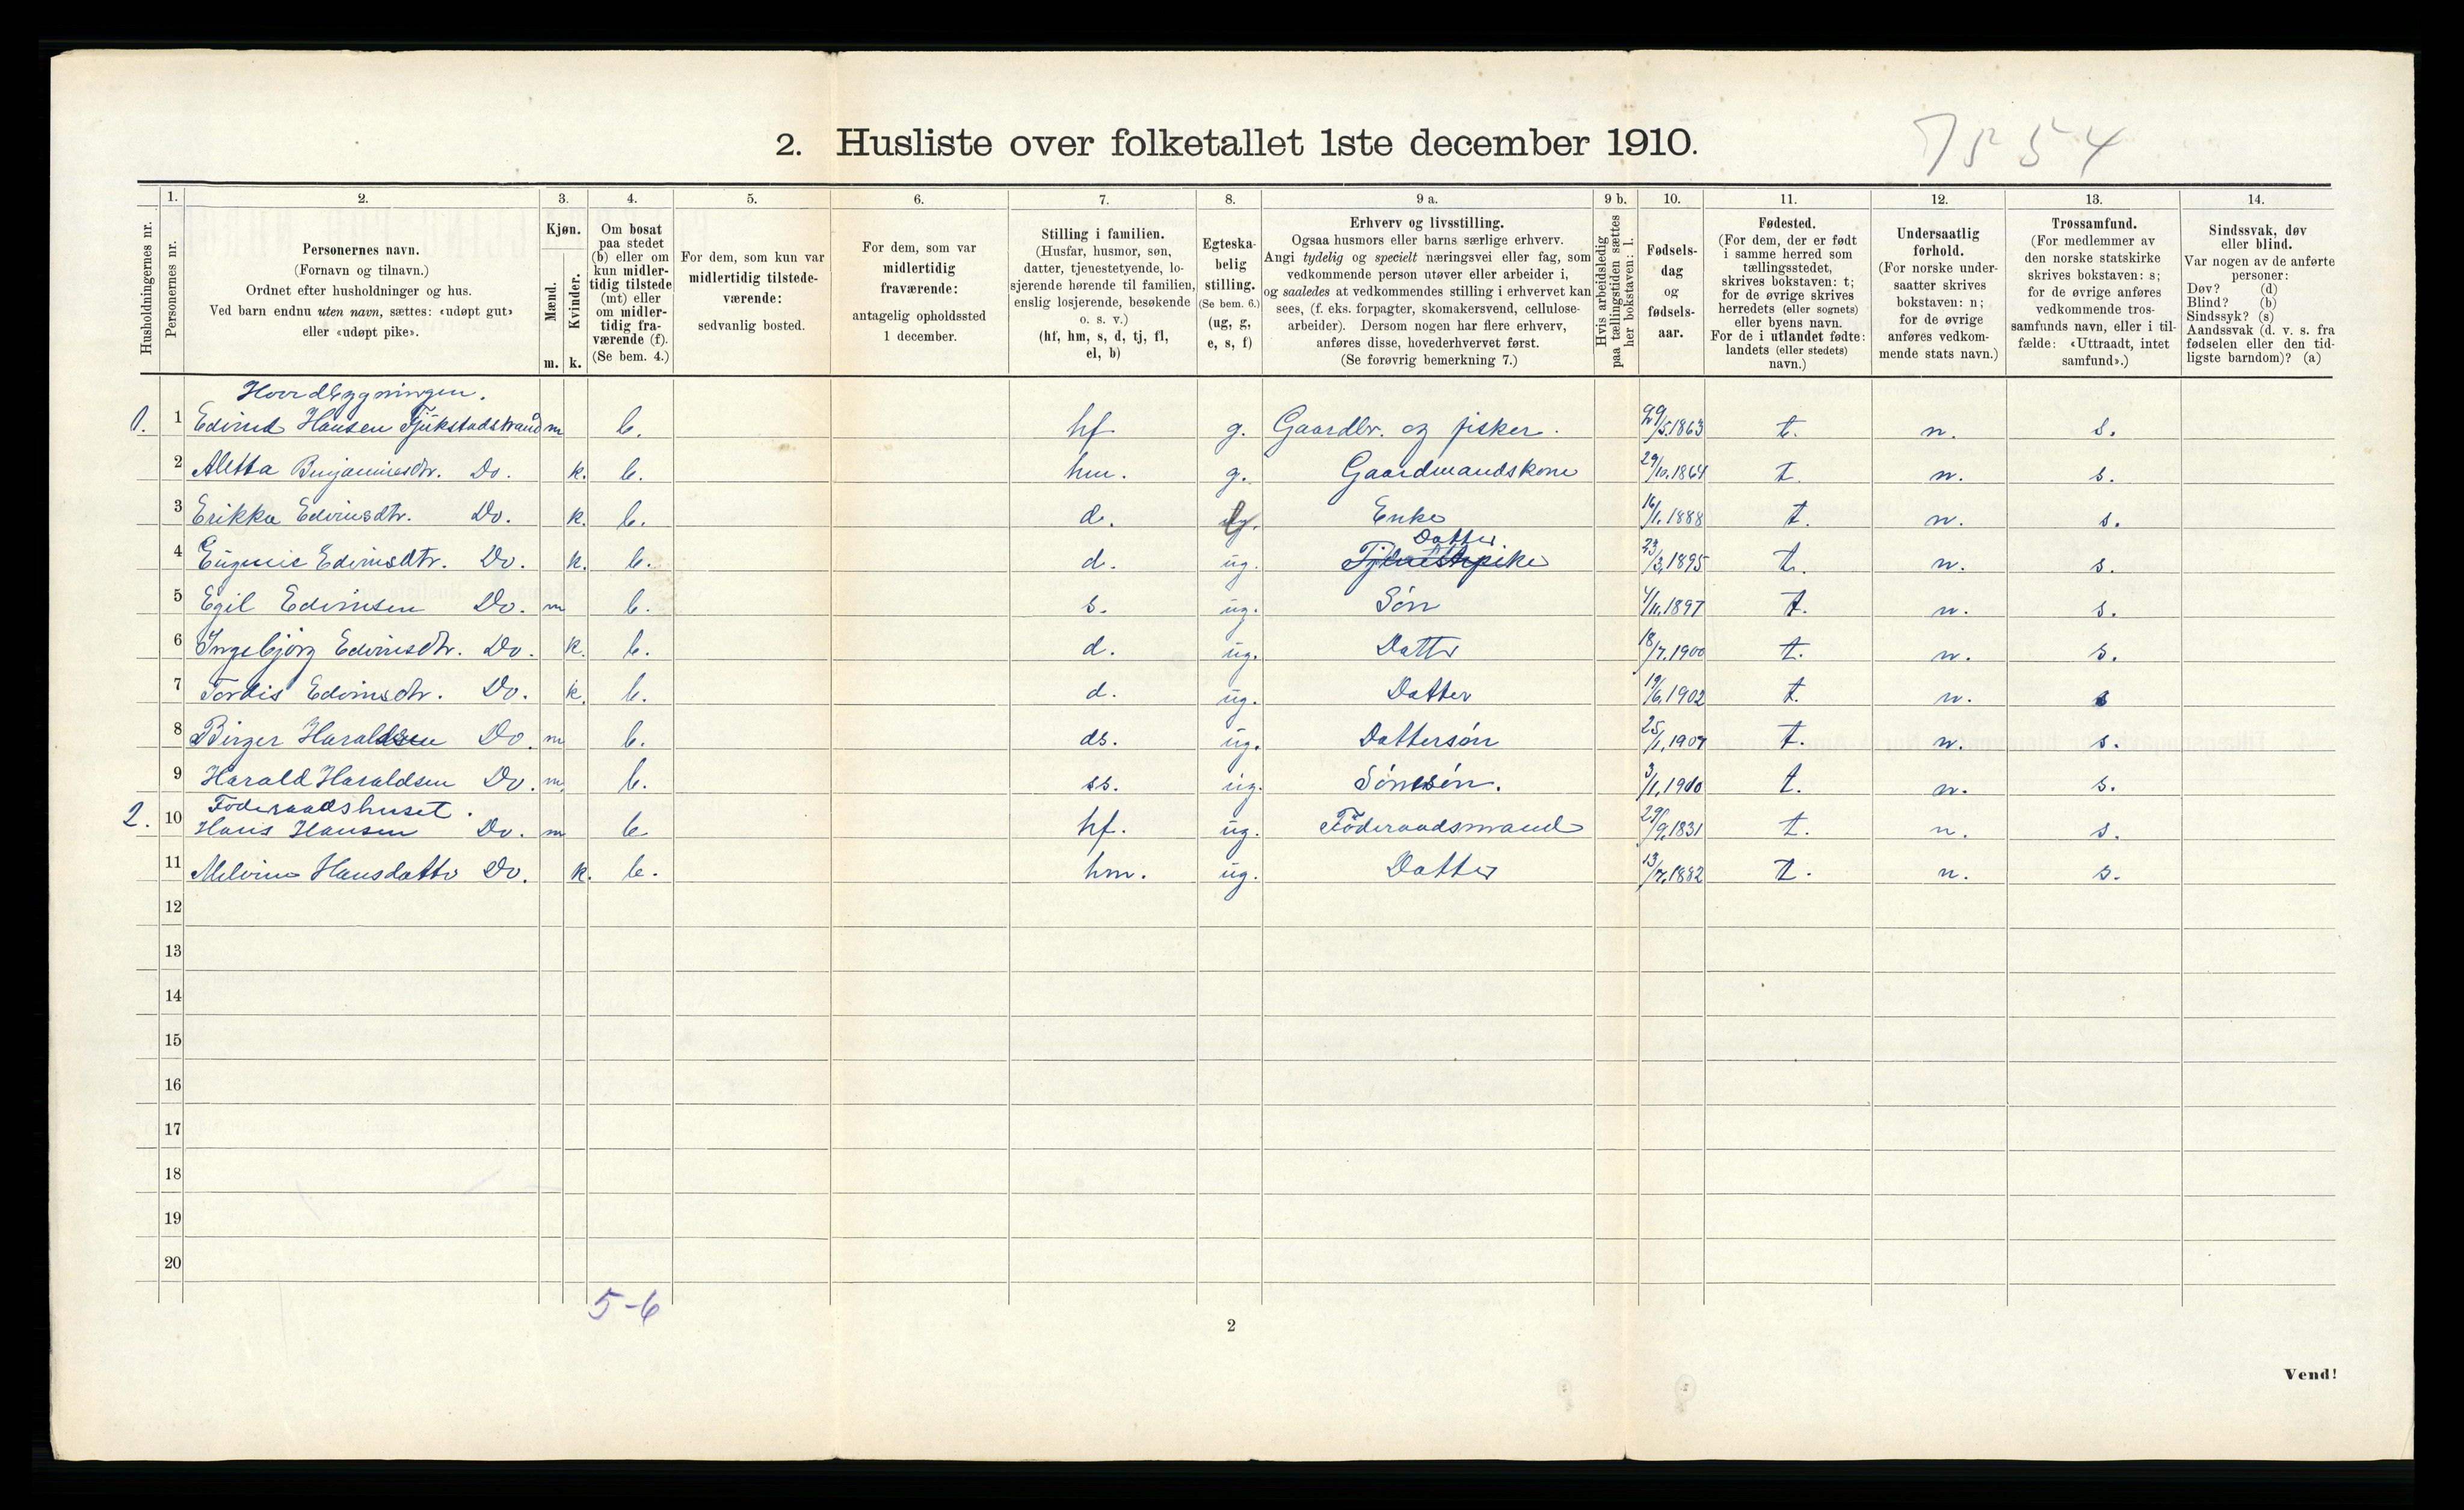 7554
2. Husliste over folketallet 1ste december 1910.
Husholdningernes nr.
1. Personernes nr.
2. Personernes navn. (Fornavn og tilnavn.) Ordnet efter husholdninger og hus. Ved barn endnu uten navn, sættes: «udøpt gut» eller «udøpt pike».
3. Kjøn. Mænd. m. Kvinder. k.
4. Om bosat paa stedet (b) eller om kun midlertidig tilstede (mt) eller om midlertidig fraværende (f). (Se bem. 4.)
5. For dem, som kun var midlertidig tilstedeværende: sedvanlig bosted.
6. For dem, som var midlertidig fraværende: antagelig opholdssted 1 december.
7. Stilling i familien. (Husfar, husmor, søn, datter, tjenestetyende, losjerende hørende til familien, enslig losjerende, besøkende o. s. v.) (hf, hm, s, d, tj, fl, el, b)
8. Egteskabelig stilling. (Se bem. 6.) (ug, g, e, s, f)
9 a. Erhverv og livsstilling. Ogsaa husmors eller barns særlige erhverv. Angi tydelig og specielt næringsvei eller fag, som vedkommende person utøver eller arbeider i, og saaledes at vedkommendes stilling i erhvervet kan sees, (f. eks. forpagter, skomakersvend, cellulosearbeider). Dersom nogen har flere erhverv, anføres disse, hovederhvervet først. (Se forøvrig bemerkning 7.)
9 b. Hvis arbeidsledig paa tællingstiden sættes her bokstaven: l.
10. Fødselsdag og fødselsaar.
11. Fødested. (For dem, der er født i samme herred som tællingsstedet, skrives bokstaven: t; for de øvrige skrives herredets (eller sognets) eller byens navn. For de i utlandet fødte: landets (eller stedets) navn.)
12. Undersaatlig forhold. (For norske undersaatter skrives bokstaven: n; for de øvrige anføres vedkommende stats navn.)
13. Trossamfund. (For medlemmer av den norske statskirke skrives bokstaven: s; for de øvrige anføres vedkommende trossamfunds navn, eller i tilfælde: «Uttraadt, intet samfund».)
14. Sindssvak, døv eller blind. Var nogen av de anførte personer: Døv? (d) Blind? (b) Sindssyk? (s) Aandssvak (d. v. s. fra fødselen eller den tidligste barndom)? (a)
Hovedbygningen.
1. 1 Edvind Hansen Fjukstadstrand m b. hf. g. Gaardbr. og fisker. 29/5.1863 t. n. s.
2 Aletta Benjaminsdtr. Do. k. b. hm. g. Gaardmandskone 29/10.1864 t. n. s.
3 Erikka Edvinsdtr. Do. k. b. d. Enke 16/1.1888 t. n. s.
Datter
4 Eugenie Edvinsdtr. Do. k. b. d. ug. Tjenestepike 23/3.1895 t. n. s.
5 Egil Edvinsen Do. m b. s. ug. Søn 4/11.1897 t. n. s.
6 Ingebjørg Edvinsdtr. Do. k. b. d. ug. Datter 18/7.1900 t. n. s.
7 Tordis Edvinsdtr. Do. k. b. d. ug. Datter 19/6.1902 t. n. s
8 Birger Haraldsen Do. m b. ds. ug. Dattersøn 25/1.1907 t. n. s.
9 Harald Haraldsen Do. m. b. ss. ug. Sønesøn. 3/1.1910 t. n. s.
Föderaadshuset.
2. 10 Hans Hansen Do. m b hf. ug. Föderaadsmand 29/9.1831 t. n. s.
11 Melvine Hansdatter Do. k. b. hm. ug. Datter 13/7.1882 t. n. s.
12
13
14
15
16
17
18
19
20
5-6
2
Vend!